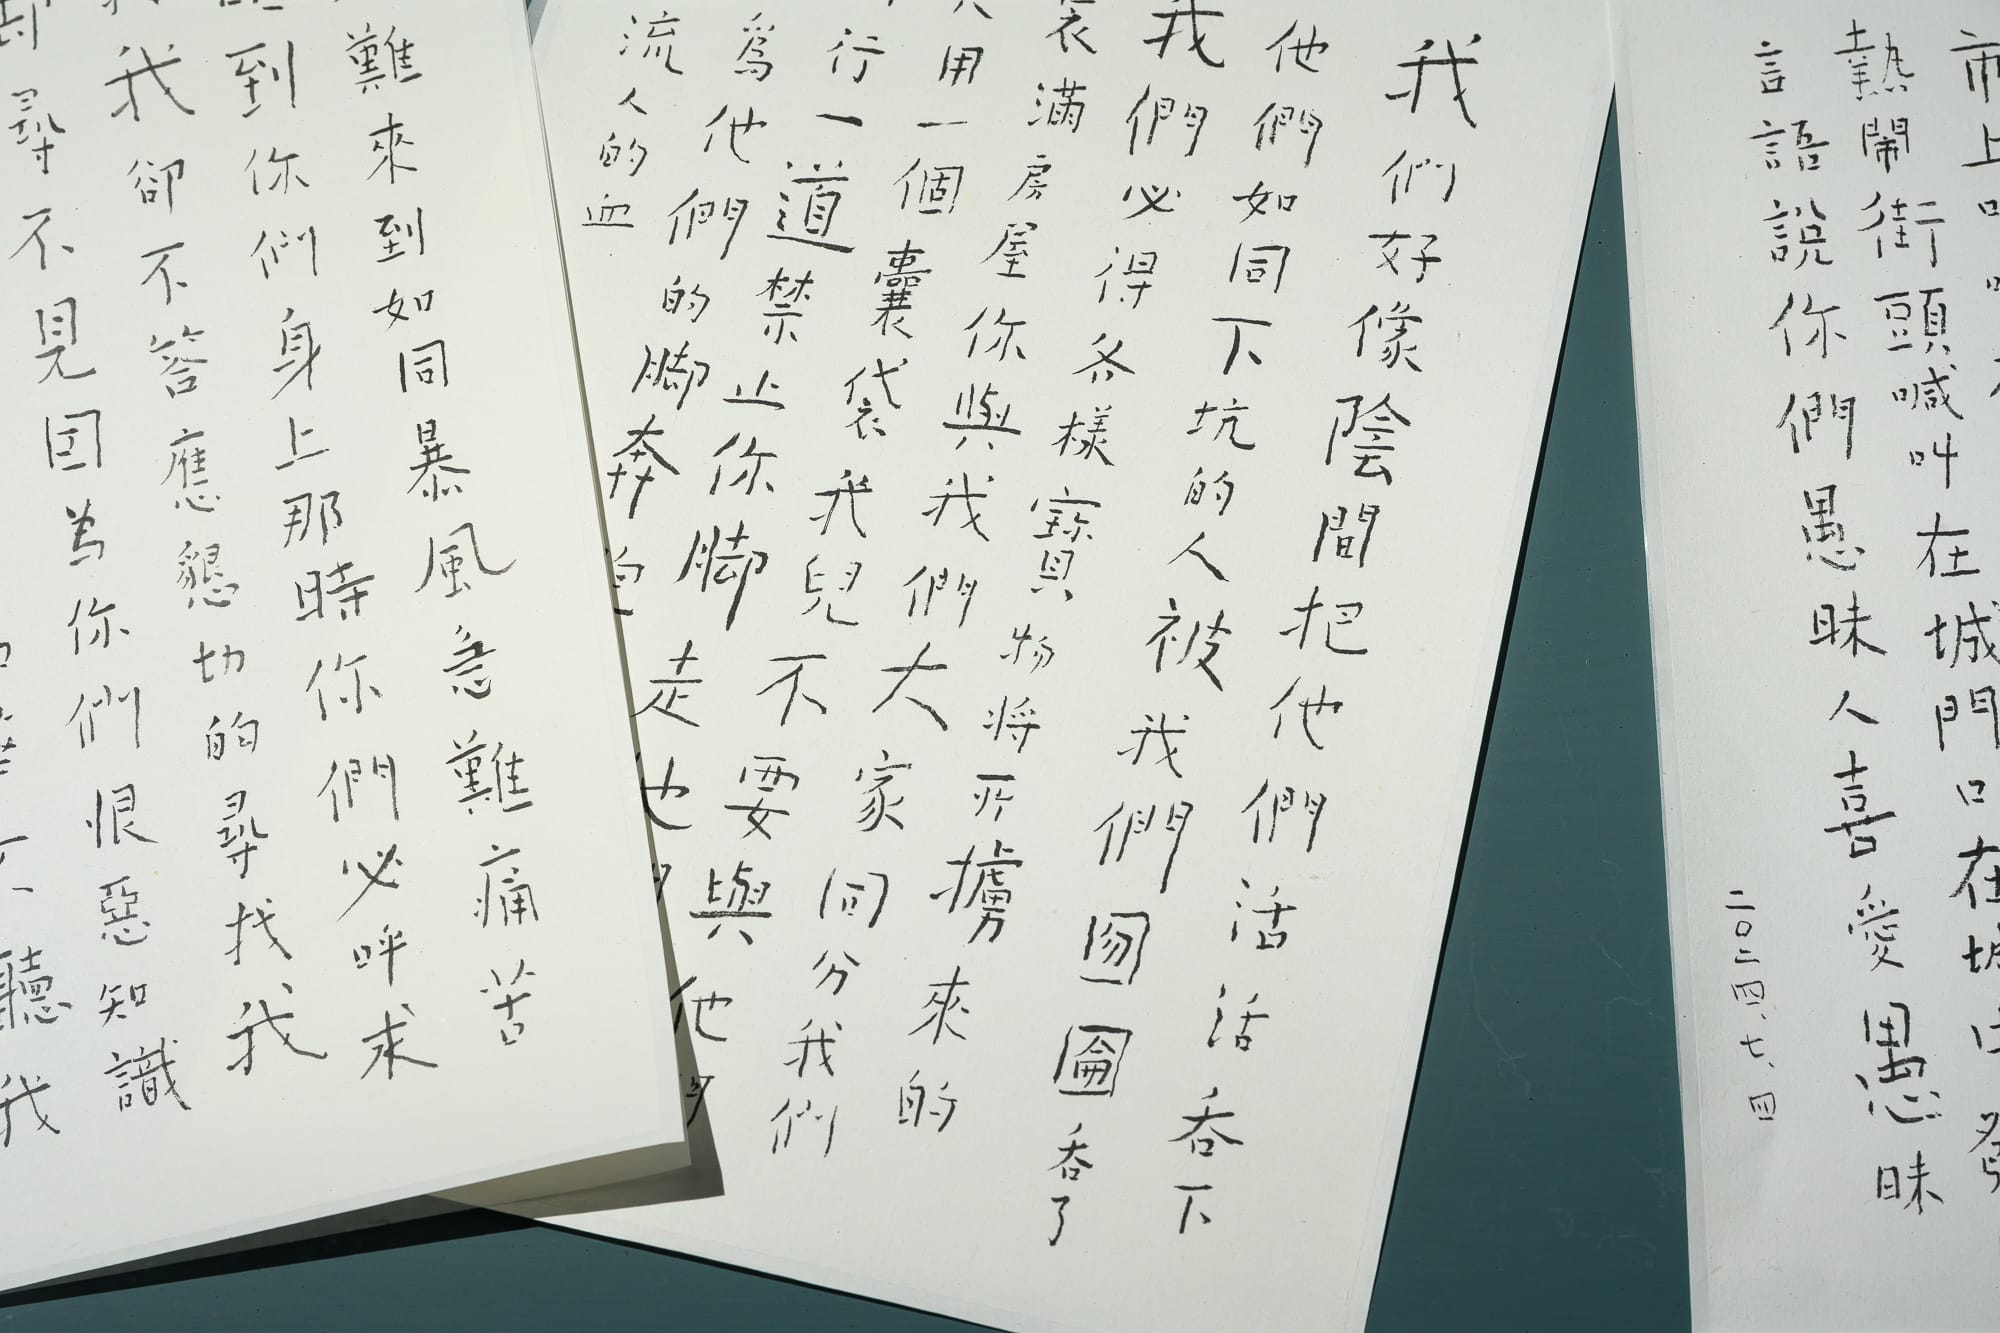 市上
熱鬧街頭喊叫在城門口在城中發
言語說你們愚昧人喜愛愚昧
二〇二四、七、四
我們好像陰間把他們活活吞下
他們如同下坑的人被我們囫圇吞了
我們必得各樣寶物將所擄來的
裝滿房屋你與我們大家同分我們
共用一個囊袋我兒不要與他
行一道禁止你脚走他
爲他們的脚奔跑
流人的血
難來到如同暴風急難痛苦
臨到你們身上那時你們必呼求
我我卻不答應懇切的尋找我
却尋不見因為你們恨惡知識
聽我